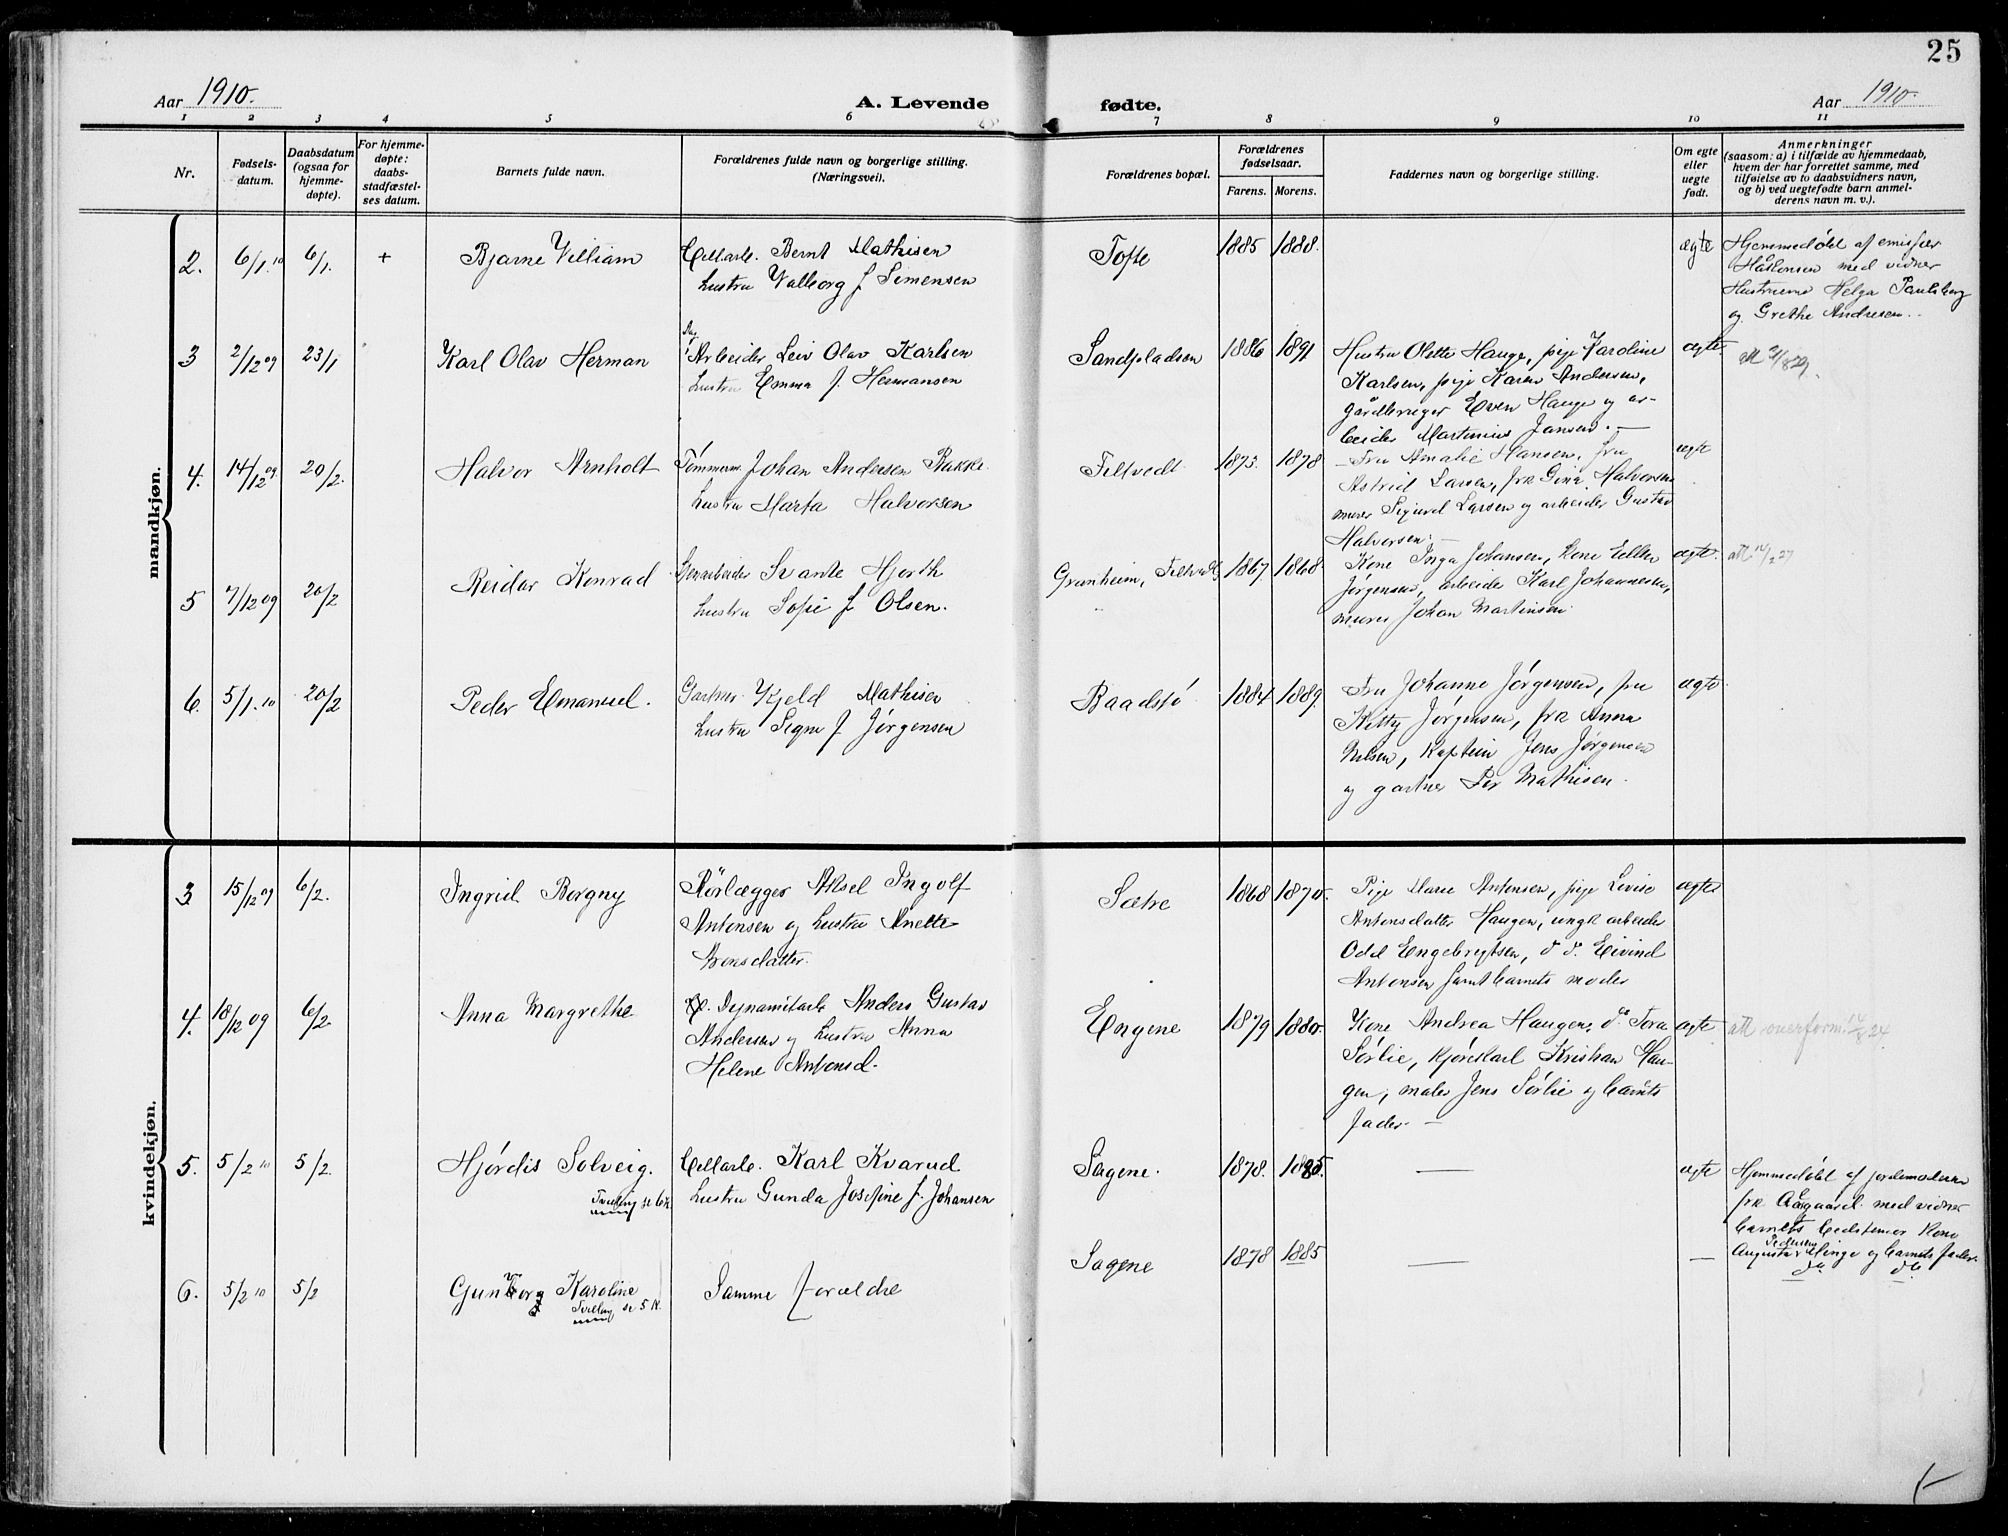 25
Aar 1910.
A. Levende
fødte.
Aar 1910.
1 2 3 4 5 6 7 8 9 10 11
Nr.
Fødsels-
datum.
Daabsdatum
(ogsaa for
hjemme-
døpte).
For hjemme-
døpte:
daabs-
stadfæstel-
ses datum.
Barnets fulde navn.
Forældrenes fulde navn og borgerlige stilling.
(Næringsvei).
Forældrenes bopæl.
Forældrenes
fødselsaar.
Farens. Morens.
Faddernes navn og borgerlige stilling.
Om egte
eller
uegte
født.
Anmerkninger
(saasom: a) i tilfælde av hjemmedaab,
hvem der har forrettet samme, med
tilføielse av to daabsvidners navn,
og b) ved uegtefødte barn anmel-
derens navn m. v.).
mandkjøn.
2. 6/1.10 6/1. + Bjarne Villiam
Cellarb. Bernt Mathisen
hustru Valborg f Simensen
Tofte 1885 1888.
ægte
Hjemmedøbt af emissær
Håkonsen med vidner
Hustruerne Helga Paulsberg
og Grethe Andresen.
3 2/12 09 23/1 Karl Olav Herman
Arbeider Leiv Olav Karlsen
hustru Emma f. Hermansen
Sandpladsen 1886 1891
Hustru Olette Hauge, pige Karoline
Karlsen, pige Karen Andersen,
gårdbruger Even Hauge og ar-
beider Martinius Jansen. —
ægte
4. 14/12 09. 20/2. Halvor Arnholt
Tømmerm. Johan Andersen Bakke
hustru Marta Halvorsen
Filtvedt 1873. 1878
Fru Amalie Hansen, fru
Astrid Larsen, frk Gina Halvorsen
murer Sigurd Larsen og arbeider Gustav
Halvorsen. —
ægte
5 7/12 09 20/2 Reidar Konrad
Svante Hjorth
hustru Sofie f Olsen.
Granheim, Filtvedt 1867 1868
Kone Inga Johansen, kone Ellen
Jørgensen, arbeider Karl Johannesen,
murer Johan Martinsen.
ægte.
att 14/2 27
6. 5/1.10 20/2 Peder Emanuel.
Gartner Kjeld Mathisen
hustru Signe f Jørgensen
Baadstø 1884 1889.
Fru Johanne Jørgensen, fru
Kitty Jørgensen, frk Anna
Nilsen, kaptein Jens Jørgensen
og gartner Per Mathisen.
ægte
kvindekjøn.
3 15/12 09 6/2. Ingrid Borgny
Rørlægger Aksel Ingolf
Antonsen og hustru Anette
Aronsdatter.
Sætre 1868 1870.
Pige Marie Antonsen, pige Lovise
Antonsdatter Haugen, ungk arbeider
Odd Engebregtsen, d d. Eivind
Antonsen samt barnets moder
ægte
4. 18/12 09 6/2. Anna Margrethe
Dynamitarb Anders Gustav
Andersen og hustru Anna
Helene Antonsd.
Engene 1879 1880.
Kone Andrea Haugen, do Tora
Sørlie, kjørekarl Kristian Hau-
gen, maler Jens Sørlie og barnets
fader. —
ægte
att overform. 14/8 24
5. 5/2 10 5/2. Hjørdis Solveig.
Tvilling se 6 k.
Cellarb. Karl Kvarud
hustru Gunda Josefine f. Johansen
Sagene. 1878. 1885.
—
ægte
Hjemmedøbt af jordemoderen
frk Aagaard med vidner
barnets bedstemor kone
Augusta Pedersen Hinge og barnets fader.
6. 5/2 10 5/2 Gunvorg Karoline
Tvilling se 5 k.
Samme forældre
Sagene 1878 1885
—
—
do do